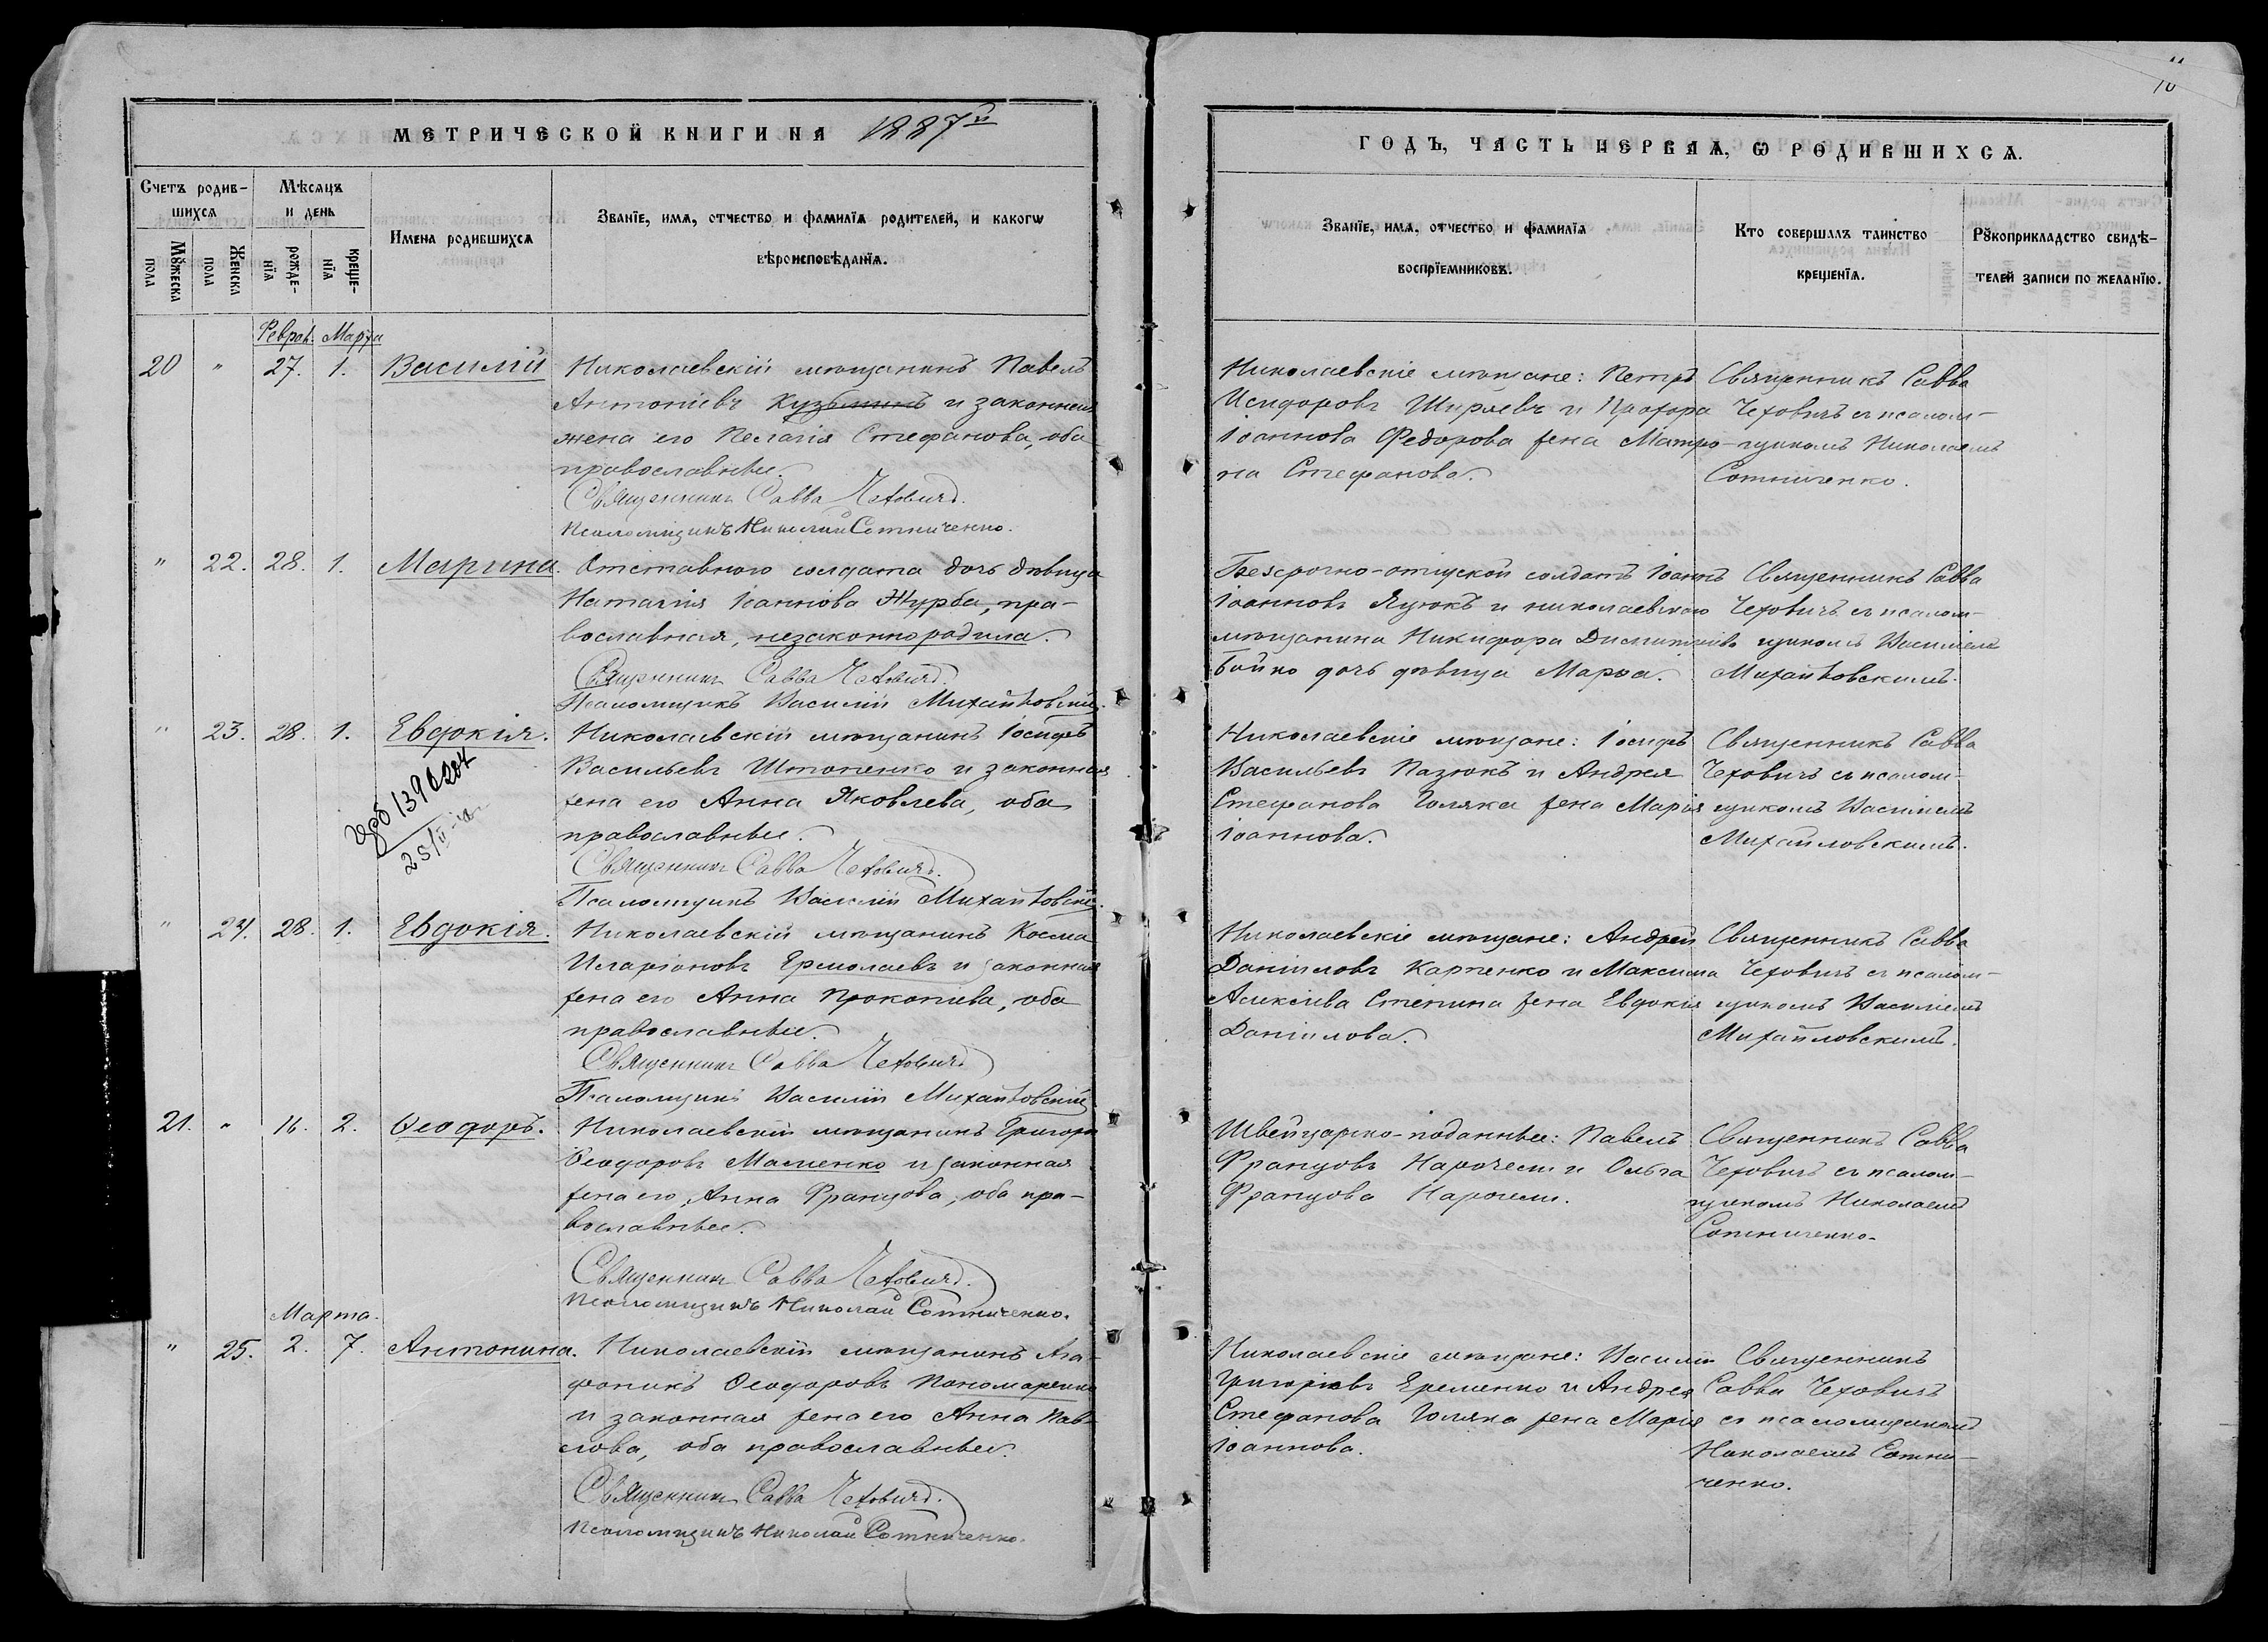 МЕТРИЧЕСКОЙ КНИГИ НА 1887й
Счетъ родив-
шихся
Мѣсяцъ
и день
Мꙋжеска
пола
Женска
пола
рожде-
нїя
креще-
нїя
Имена родившихся
Званїе, имя, отчество и фамилїя родителей, и какогѡ
вѣроисповѣданїя.
Феврал. Марта
20 " 27. 1. Василій
Николаевскій мѣщанинъ Павелъ
Антоніевъ Кузьминъ и законная
жена его Пелагія Стефанова, оба
православные.
Священникъ Савва Чеховичъ.
Псаломщикъ Николай Сотниченко.
" 22. 28. 1. Марина.
Отставного солдата дочь дѣвица
Наталія Іоаннова Журба, пра-
вославная, незаконно родила.
Священникъ Савва Чеховичъ.
Псаломщикъ Василій Михайловскій.
" 23. 28. 1. Евдокія.
Николаевскій мѣщанинъ Іосифъ
Васильевъ Штопенко и законная
жена его Анна Яковлева, оба
православные.
Священникъ Савва Чеховичъ.
Псаломщикъ Василій Михайловскій.
" 24. 28. 1. Евдокія.
Николаевскій мѣщанинъ Косма
Иларіоновъ Ермолаевъ и законная
жена его Анна Прокопіева, оба
православные.
Священникъ Савва Чеховичъ
Псаломщикъ Василій Михайловскій
21. " 16. 2. Ѳеодоръ.
Николаевскій мѣщанинъ Григорій
Ѳеодоровъ Масленко и законная
жена его Анна Францова, оба пра-
вославные.
Священникъ Савва Чеховичъ.
Псаломщикъ Николай Сотниченко.
Марта.
" 25. 2. 7. Антонина.
Николаевскій мѣщанинъ Ага-
фоникъ Ѳеодоровъ Пономаренко
и законная жена его Анна Пав-
лова, оба православные.
Священникъ Савва Чеховичъ.
Псаломщикъ Николай Сотниченко.
ГОДЪ, ЧАСТЬ ПЕРВАЯ, Ѡ РОДИВШИХСЯ.
Званїе, имя, отчество и фамилїя
воспрїемниковъ.
Кто совершалъ таинство
крещенїя.
Рꙋкоприкладство свидѣ-
телей записи по желанїю.
Николаевскіе мѣщане: Петръ
Исидоровъ Ширяевъ и Прохора
Іоаннова Федорова жена Матро-
на Стефанова.
Священникъ Савва
Чеховичъ съ псалом-
щикомъ Николаемъ
Сотниченко.
Безсрочно-отпускной солдатъ Іоаннъ
Іоанновъ Яцюкъ и николаевскаго
мѣщанина Никифора Димитріева
Бойко дочь дѣвица Марѳа.
Священникъ Савва
Чеховичъ съ псалом-
щикомъ Василіемъ
Михайловскимъ.
Николаевскіе мѣщане: Іосифъ
Васильевъ Пазюкъ и Андрея
Стефанова Голяка жена Марія
Іоаннова.
Священникъ Савва
Чеховичъ съ псалом-
щикомъ Василіемъ
Михайловскимъ.
Николаевскіе мѣщане: Андрей
Даніиловъ Карпенко и Максима
Алексіева Степина жена Евдокія
Даніилова.
Священникъ Савва
Чеховичъ съ псалом-
щикомъ Василіемъ
Михайловскимъ.
Швейцарско-поданные: Павелъ
Францовъ и Ольга
Францова
Священникъ Савва
Чеховичъ съ псалом-
щикомъ Николаемъ
Сотниченко.
Николаевскіе мѣщане: Василій
Григоріевъ Еременко и Андрея
Стефанова Голяка жена Марія
Іоаннова.
Священникъ
Савва Чеховичъ
съ псаломщикомъ
Николаемъ Сотни-
ченко.